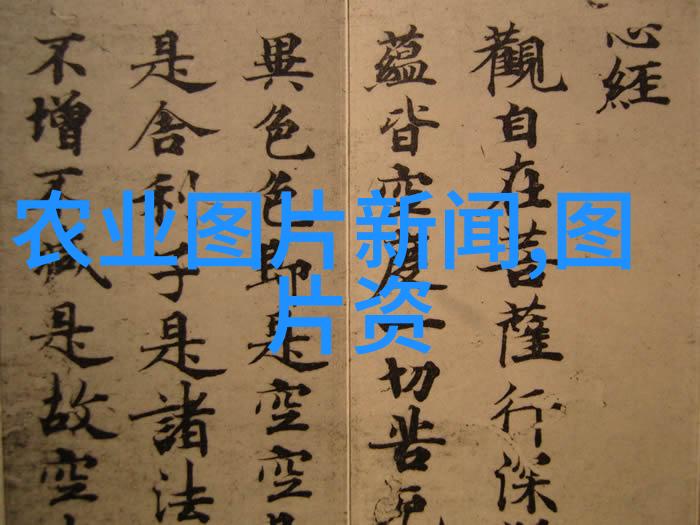 心經
觀自在菩薩行深
蘊皆空度一切苦厄
異色色即是空空
是舍利子是諸法
不增不減是故空
农业图片新闻,图
片资